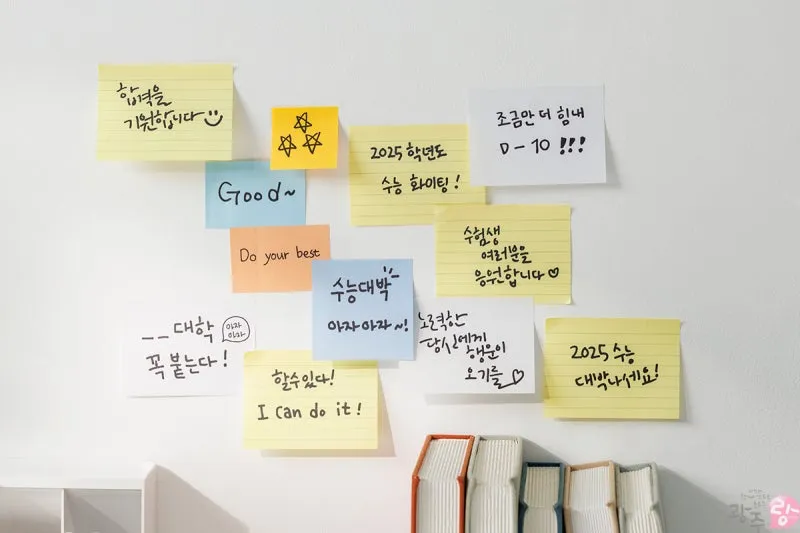 합격을
기원합니다
2025 학년도
수능 화이팅!
조금만 더 힘내
D-10 !!!
Good~
Do your best
수험생
여러분을
응원합니다♡
수능대박
아자아자~!
__대학
아자
아자
꼭 붙는다!
노력한
당신에게
행운이
오기를
할수있다!
I can do it!
2025 수능
대박나세요!
광주랑